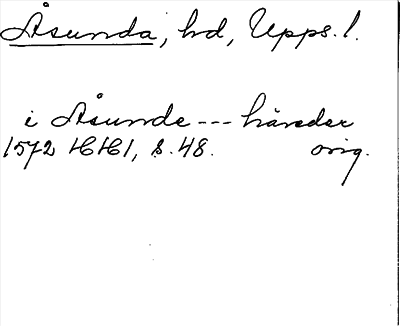 Åsunda, hd, Upps. l.
i Åsunde --- häreder
1572 HH1, s. 48. orig.